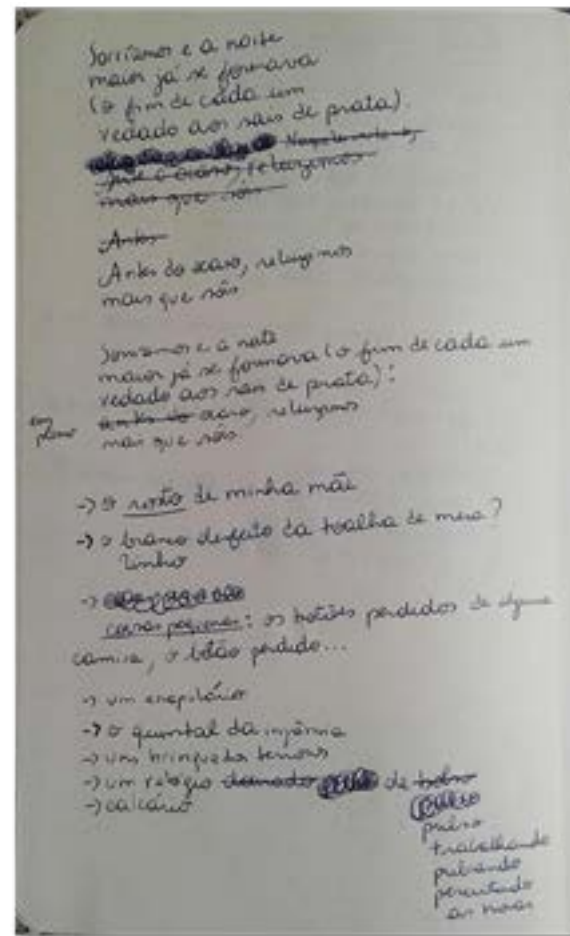 Sorríamos e a noite
maior já se formava
(o fim de cada um
vedado aos sais de prata).
reluzimos
mais que sóis
Antes
Antes do ocaso, reluzimos
mais que sóis
Sorríamos e a noite
maior já se formava (o fim de cada um
vedado aos sais de prata):
antes do ocaso, reluzimos
mais que sóis
-> o rosto de minha mãe
-> o branco da toalha de mesa?
linho
->
coisas pequenas: os botões perdidos de alguma
camisa, o botão perdido...
-> um
-> o quintal da infância
-> uns brinquedos
-> um relógio de bolso
-> calcário
pulso
trabalhando
pulsando
percutindo
as horas